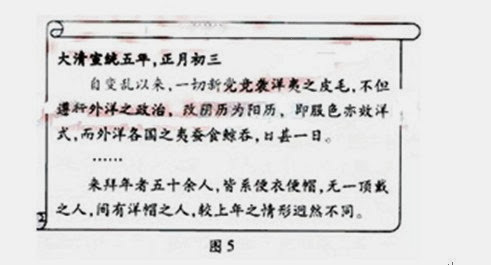 大清宣统五年，正月初三
自变乱以来，一切新党竞袭洋夷之皮毛，不但
遵行外洋之政治，改阴历为阳历，即服色亦效洋
式，而外洋各国之夷蚕食鲸吞，日甚一日。
……
来拜年者五十余人，皆系便衣便帽，无一顶戴
之人，间有洋帽之人，较上年之情形迥然不同。
图5